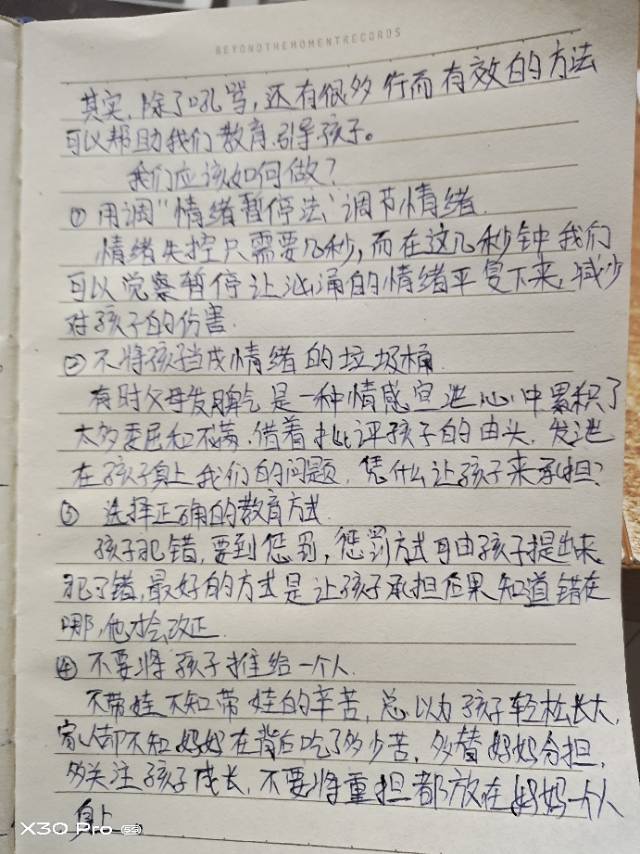 BEYONDTHEMOMENTRECORDS
其实,除了吼骂,还有很多行而有效的方法
可以帮助我们教育、引导孩子。
我们应该如何做?
① 用调"情绪暂停法"调节情绪.
情绪失控只需要几秒,而在这几秒钟我们
可以觉察暂停让汹涌的情绪平复下来,减少
对孩子的伤害.
② 不将孩子当成情绪的垃圾桶.
有时父母发脾气是一种情感宣泄心中累积了
太多委屈和不满,借着批评孩子的由头,发泄
在孩子身上我们的问题,凭什么让孩子来承担?
③ 选择正确的教育方式.
孩子犯错,要到惩罚,惩罚方式可由孩子提出来,
犯了错,最好的方式是让孩子承担后果知道错在
哪,他才会改正.
④ 不要将孩子推给一个人.
不带娃不知带娃的辛苦,总以为孩子轻松长大,
家人却不知妈妈在背后吃了多少苦,多替妈妈分担,
多关注孩子成长,不要将重担都放在妈妈一个人
身上.
X30 Pro 5G